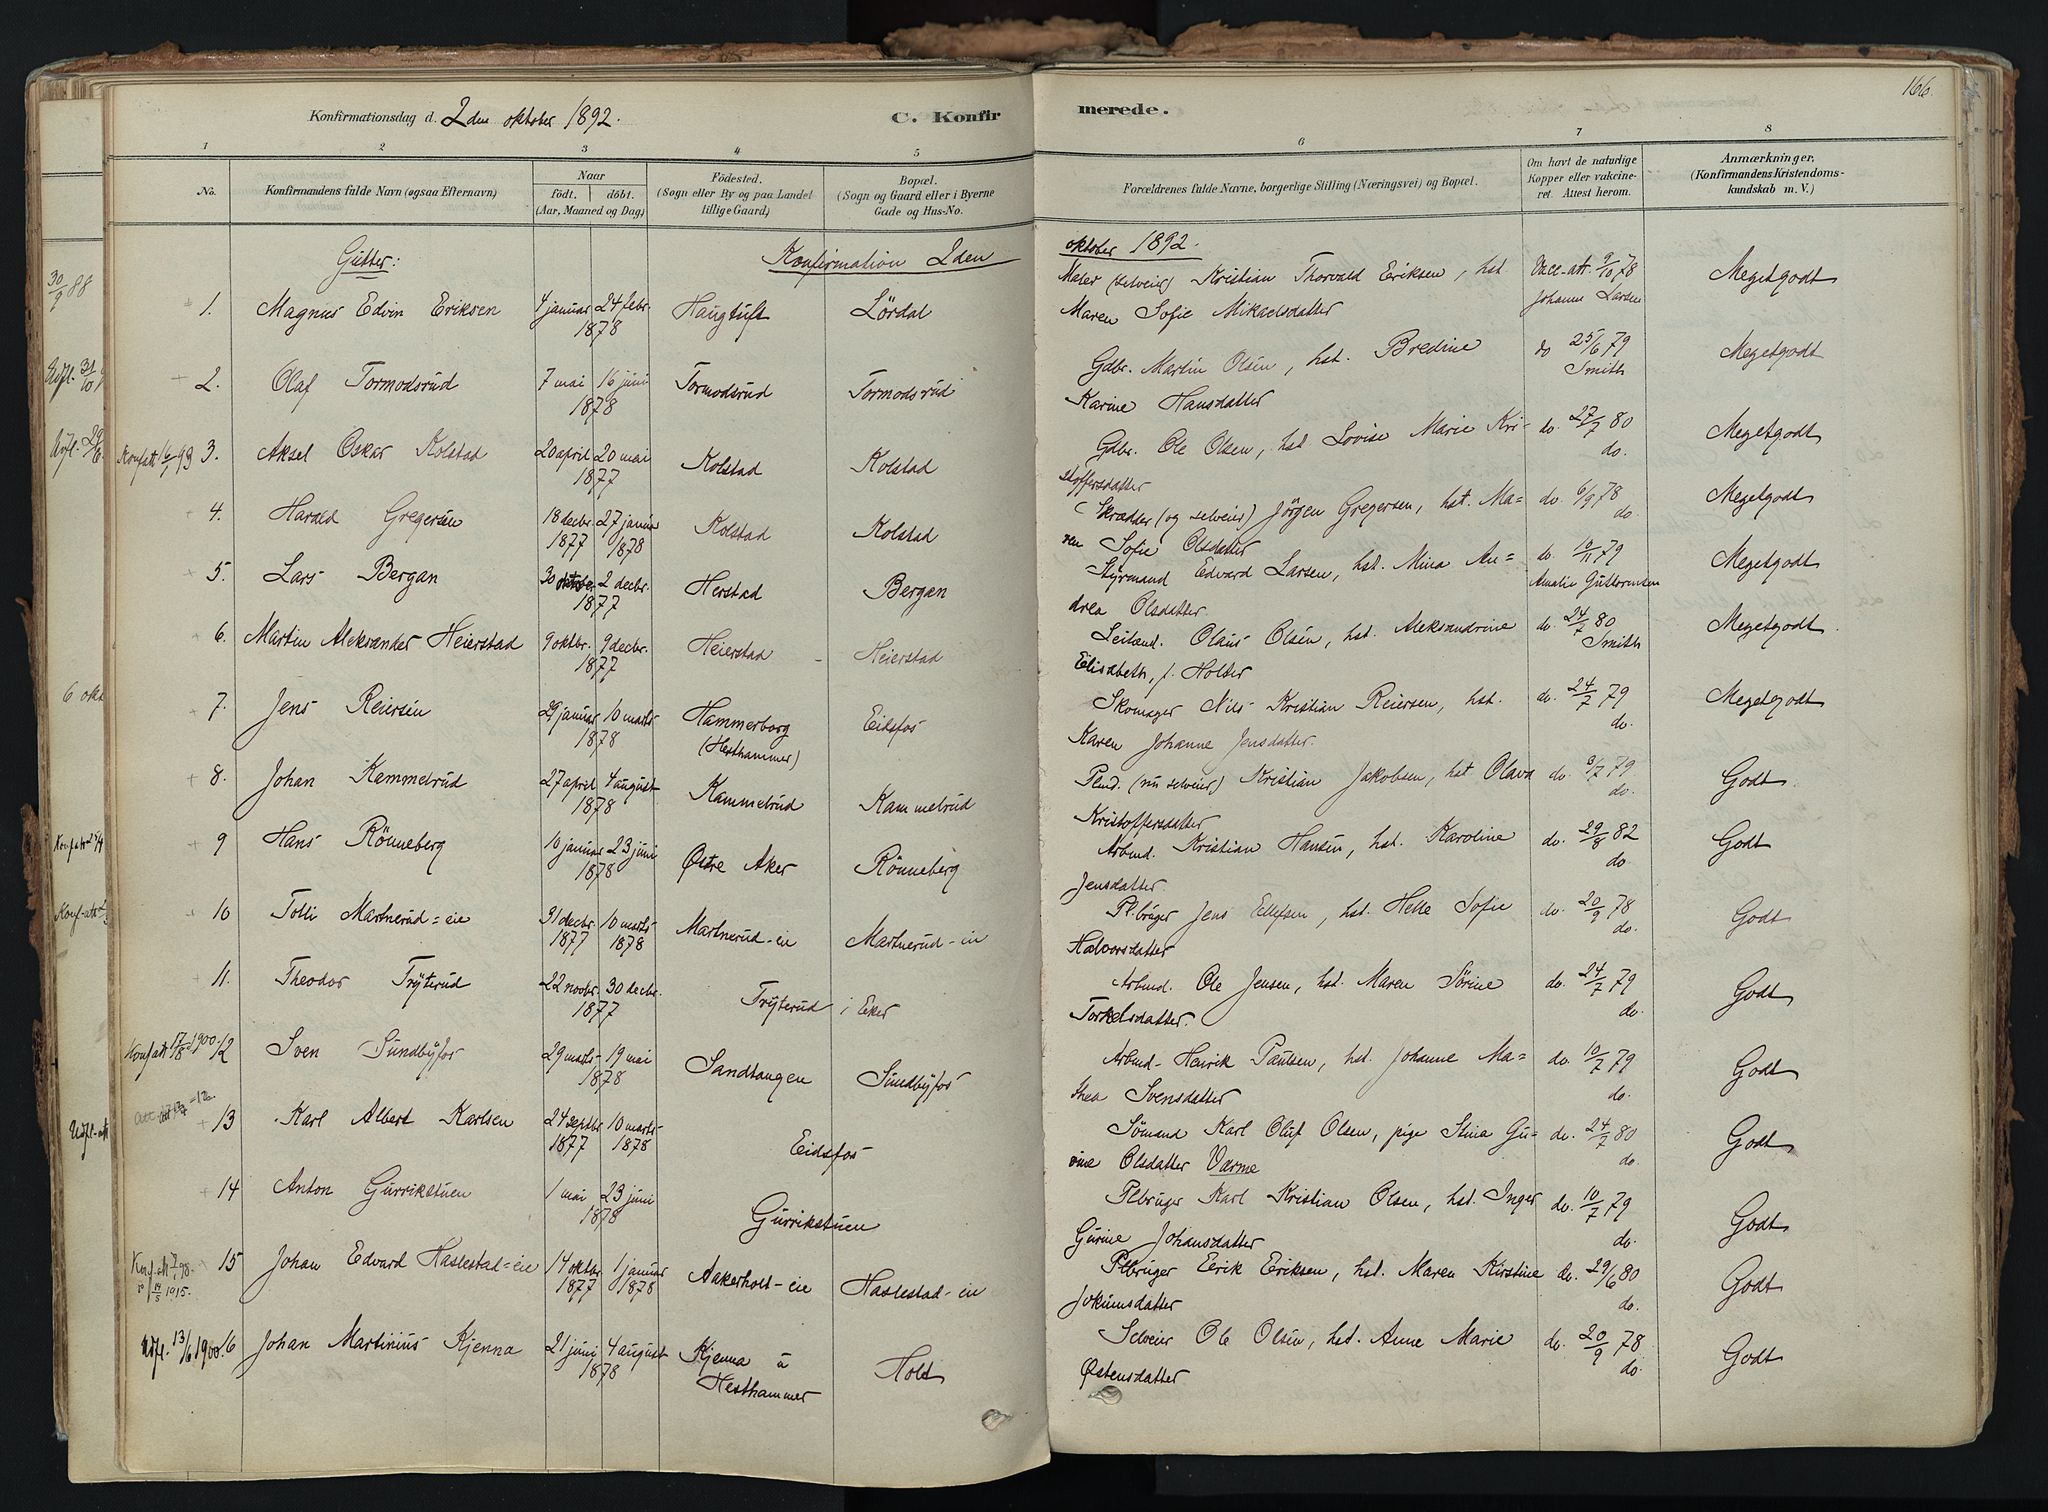 166.
Konfirmationsdag d. 2den oktober 1892.
C. Konfirmerede.
1 2 3 4 5 6 7 8
No.
Konfirmandens fulde Navn (ogsaa Efternavn)
Naar
födt. döbt.
(Aar, Maaned og Dag)
Födested.
(Sogn eller By og paa Landet
tillige Gaard)
Bopæl.
(Sogn og Gaard eller i Byerne
Gade og Hus-No.
Forældrenes fulde Navne, borgerlige Stilling (Næringsvei) og Bopæl.
Om havt de naturlige
Kopper eller vakcine-
ret. Attest herom.
Anmærkninger,
(Konfirmandens Kristendoms-
kundskab m. V.)
Gutter: Konfirmation 2den oktober 1892.
1. Magnus Edvin Eriksen 4 januar 24 febr. 1878 Haugtuft Lördal Maler (selveier) Kristian Thorvald Eriksen, hst. Vacc-att. 9/10 78 Megetgodt
Maren Sofie Mikaelsdatter Johanne Larsen
2. Olaf Tormodsrud 7 mai 16 juni 1878 Tormodsrud Tormodsrud Gdbr. Martin Olsen, hst. Bredine do 25/6 79 Megetgodt
Karine Hansdatter Smith
Konfatt 16/7 93 3. Aksel Oskar Kolstad 20 april 20 mai 1877 Kolstad Kolstad Gdbr. Ole Olsen, hst. Lovise Marie Kri- do. 27/7 80 Megetgodt
stoffersdatter do.
4. Harald Gregersen 18 decbr. 1877 27 januar 1878 Kolstad Kolstad Skrædder (og selveier) Jörgen Gregersen, hst. Ma= do. 6/9 78 Megetgodt
ren Sofie Olsdatter do.
5. Lars Bergan 30 oktober 2 decbr. 1877 Herstad Bergan Styrmand Edvard Larsen, hst. Mina An= do. 10/11 79 Megetgodt
drea Olsdatter. Amalie Guttormsen
6. Martin Aleksander Heierstad 9 oktbr. 9 decbr. 1877 Heierstad - Heierstad Leilænd. Olaus Olsen, hst. Aleksandrine do. 24/7 80 Megetgodt
Elisabeth, f. Holter Smith
7. Jens Reiersen 29 januar 10 marts 1878 Hammerborg (Hesthammer) Eidsfos Skomager Nils Kristian Reiersen, hst. do. 24/7 79 Megetgodt
Karen Johanne Jensdatter. do.
8. Johan Kammelrud 27 april 4 august 1878 Kammelrud Kammelrud Plmd. (nu selveier) Kristian Jakobsen, hst Olava do. 3/7 79 Godt
Kristoffersdatter do.
9 Hans Rönneberg 10 januar 23 juni 1878 Østre Aker Rönneberg Arbmd. Kristian Hansen, hst. Karoline do. 29/8 82 Godt
Jensdatter. do
10 Tolli Martnerud=eie 31 decbr. 1877 10 marts 1878 Martnerud-eie Martnerud-eie Pl.bruger Jens Ellefsen, hst. Helle Sofie do. 20/9 78 Godt
Halvorsdatter do.
11. Theodor Tryterud 22 novbr. 30 decbr. 1877 Tryterud i Eker Arbmd. Ole Jensen, hst. Maren Sörine do. 24/7 79 Godt
Torkelsdatter. do.
Konfatt 17/8 1900. 12 Sven Sundbyfos 29 marts 19 mai 1878 Sandtangen Sundbyfos Arbmd. Henrik Paulsen, hst. Johanne Ma= do. 10/7 79 Godt
thea Svensdatter do.
13 Karl Albert Karlsen 24 septbr 1877 10 marts 1878 Eidsfos Sömand Karl Oluf Olsen, pige Stina Gu- do. 24/7 80 Godt
rine Olsdatter Varme do.
14 Anton Gurrikstuen 1 mai 23 juni 1878 Gurrikstuen Plbruger Karl Kristian Olsen, hst. Inger do. 10/7 79 Godt
Gurine Johansdatter do.
Konf.att 7/1 98. 14/5 1915. 15 Johan Edvard Haslestad=eie 14 oktbr 1877 1 januar 1878 Aakerholt-eie Haslestad-eie Plbruger Eerik Eriksen, hst. Maren Kirstine do. 29/6 80 Godt
Jokumsdatter do.
Udfl. 13/6 1900. 16 Johan Martinius Kjenna 21 juni 4 august 1878 Kjenna u Hesthammer Holt Selveier Ole Olsen, hst. Anne Marie do. 20/9 78 Godt
Østensdatter do.
30/9 88
Udfl. 31/10
Udfl.
6 okt
Udfl-att